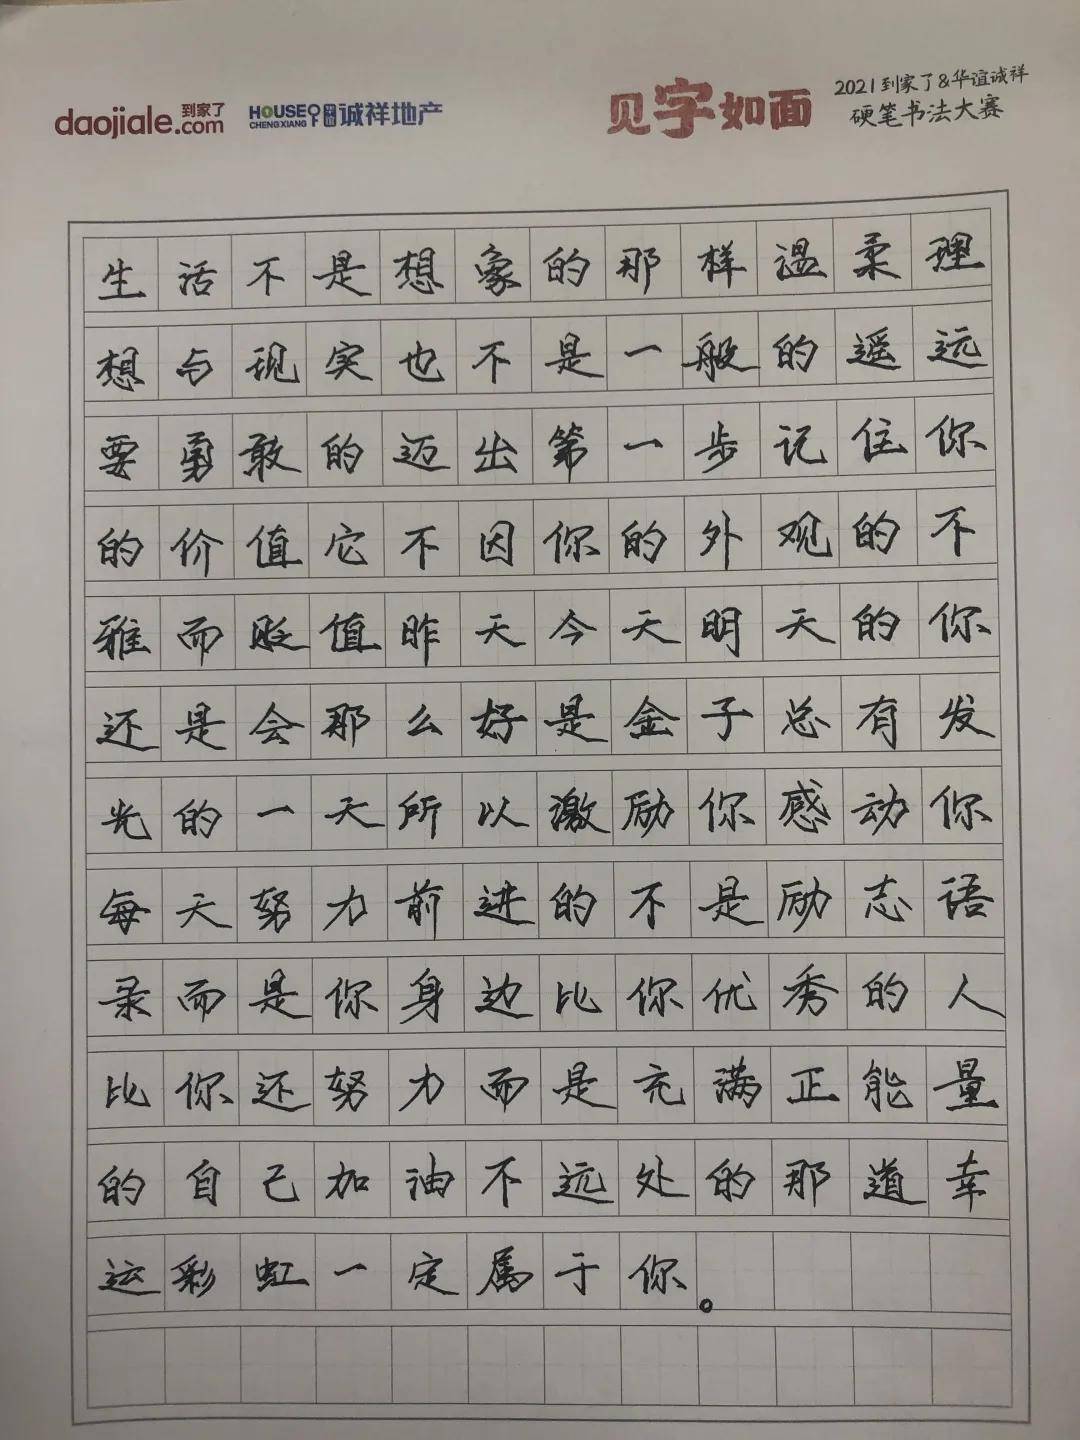 daojiale.com 到家了 HOUSE CHENGXIANG 诚祥地产 见字如面 2021到家了&华谊诚祥
硬笔书法大赛
生活不是想象的那样温柔理
想与现实也不是一般的遥远
要勇敢的迈出第一步记住你
的价值它不因你的外观的不
雅而贬值昨天今天明天的你
还是会那么好是金子总有发
光的一天所以激励你感动你
每天努力前进的不是励志语
录而是你身边比你优秀的人
比你还努力而是充满正能量
的自己加油不远处的那道幸
运彩虹一定属于你。